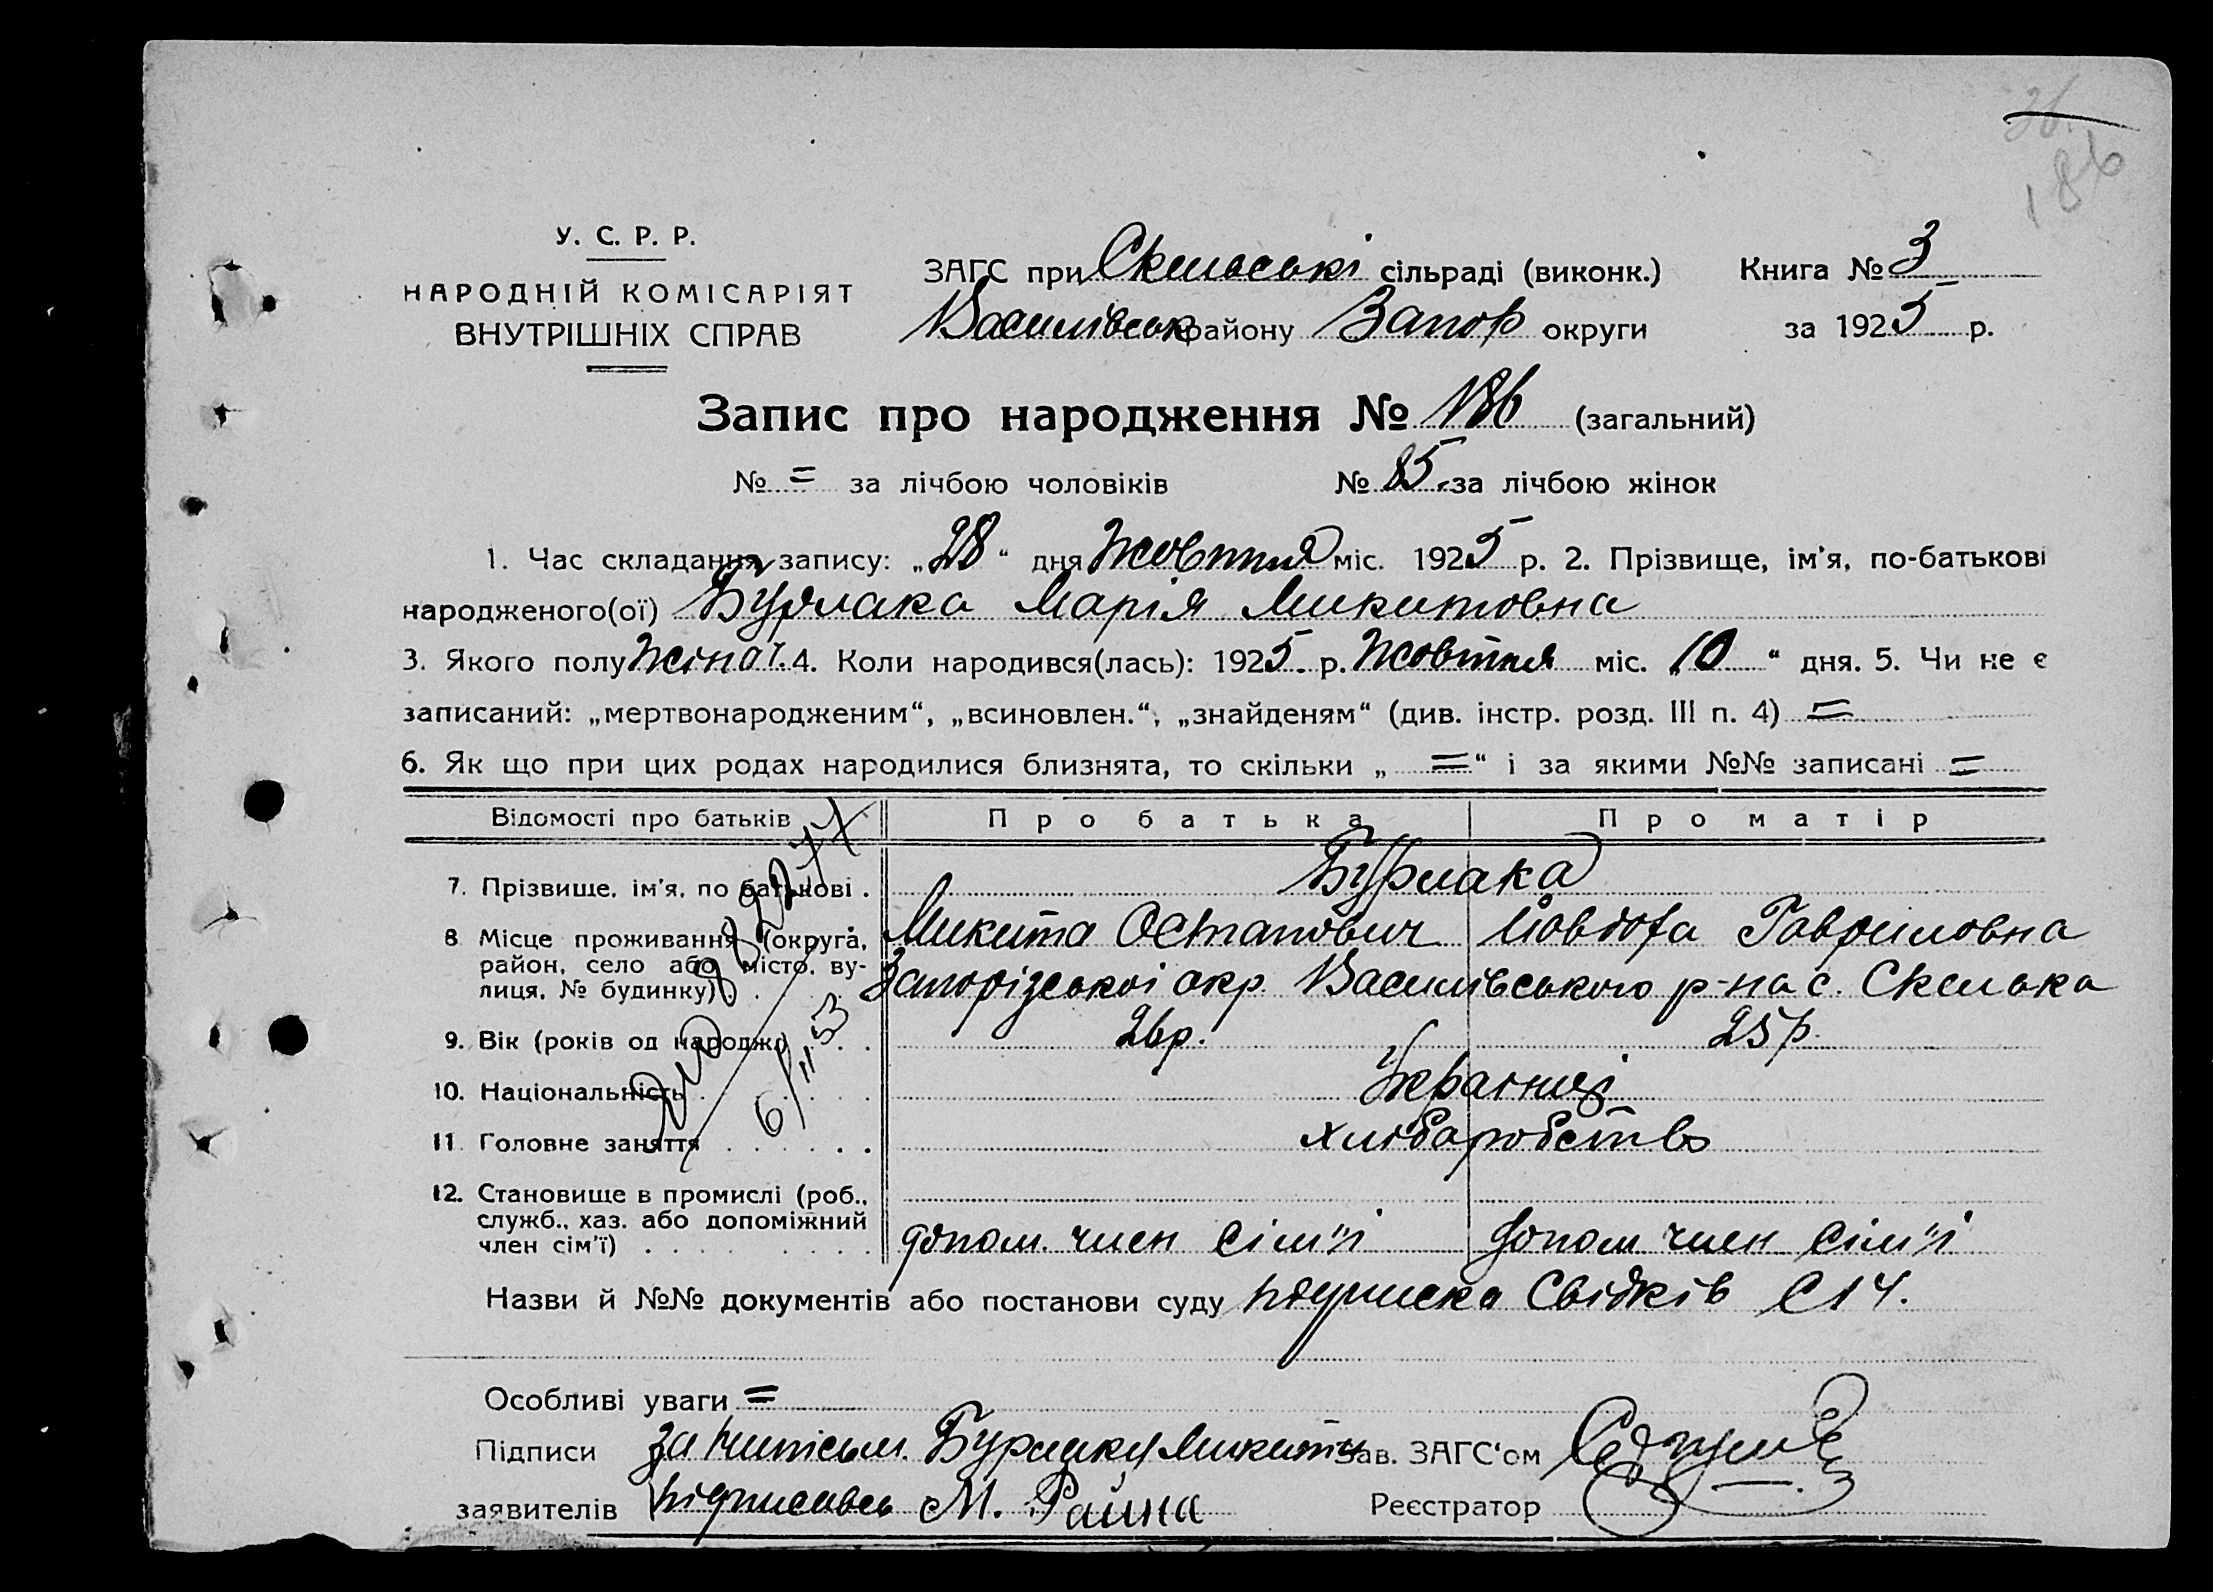 186
У. С. Р. Р.
НАРОДНІЙ КОМІСАРІЯТ
ВНУТРІШНІХ СПРАВ
ЗАГС при Скельські сільраді (виконк.) Книга № 3
Василівськ району Запор округи за 1925 р.
Запис про народження № 186 (загальний)
№ = за лічбою чоловіків № 85 за лічбою жінок
1. Час складання запису: „28“ дня Жовтня міс. 1925 р. 2. Прізвище, ім'я, по-батькові
народженого(ої) Бурлака Марія Микитовна
3. Якого полу жіноч. 4. Коли народився(лась): 1925 р. Жовтня міс. „10“ дня. 5. Чи не є
записаний: „мертвонародженим“, „всиновлен.“, „знайденям“ (див. інстр. розд. III п. 4) =
6. Як що при цих родах народилися близнята, то скільки „ = “ і за якими №№ записані =
Відомості про батьків Про батька Про матір
7. Прізвище, ім'я, по батькові . Бурлака
Микита Остапович Гавриловна
8 Місце проживання (округа,
район, село або місто, ву-
лиця, № будинку) . . . Запорізської окр. Василівського р-на с. Скелька
9. Вік (років од народж.) . . . 26р. 25р.
10. Національність . . . . . Українці
11. Головне заняття . . . . . . хліборобство
12. Становище в промислі (роб.,
служб., хаз. або допоміжний
член сім'ї) . . . . . . . . допом. член сім'ї допом член сім'ї
Назви й №№ документів або постанови суду підписка свідків С14.
Особливі уваги =
Підписи за Бурлаку Микиту Зав. ЗАГС'ом
заявителів підписавсь М. Реєстратор
6/II 53